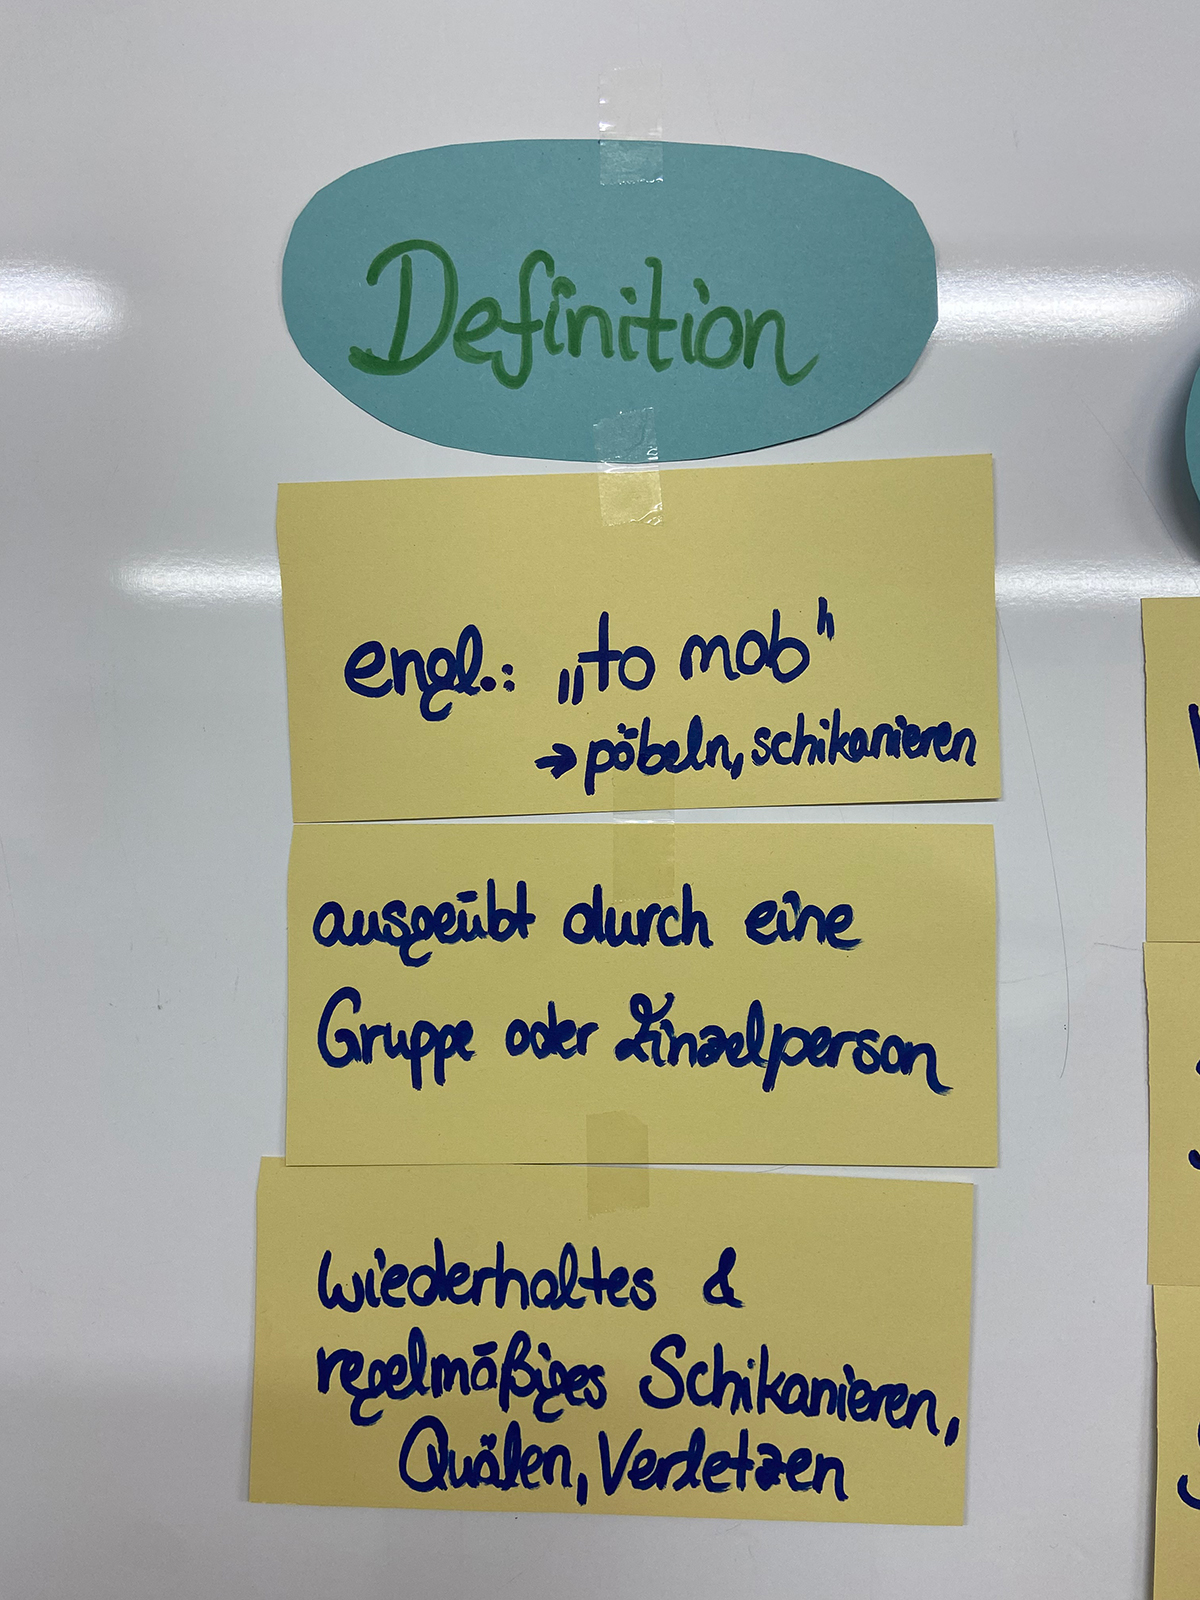 Definition
engl.: „to mob"
→ pöbeln, schikanieren
ausgeübt durch eine
Gruppe oder Einzelperson
wiederholtes &
regelmäßiges Schikanieren,
Quälen, Verletzen